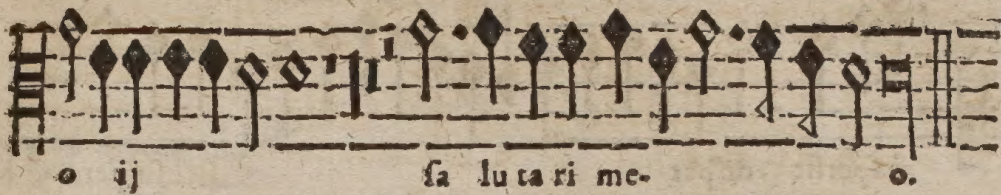 o ij sa lu ta ri me- o.